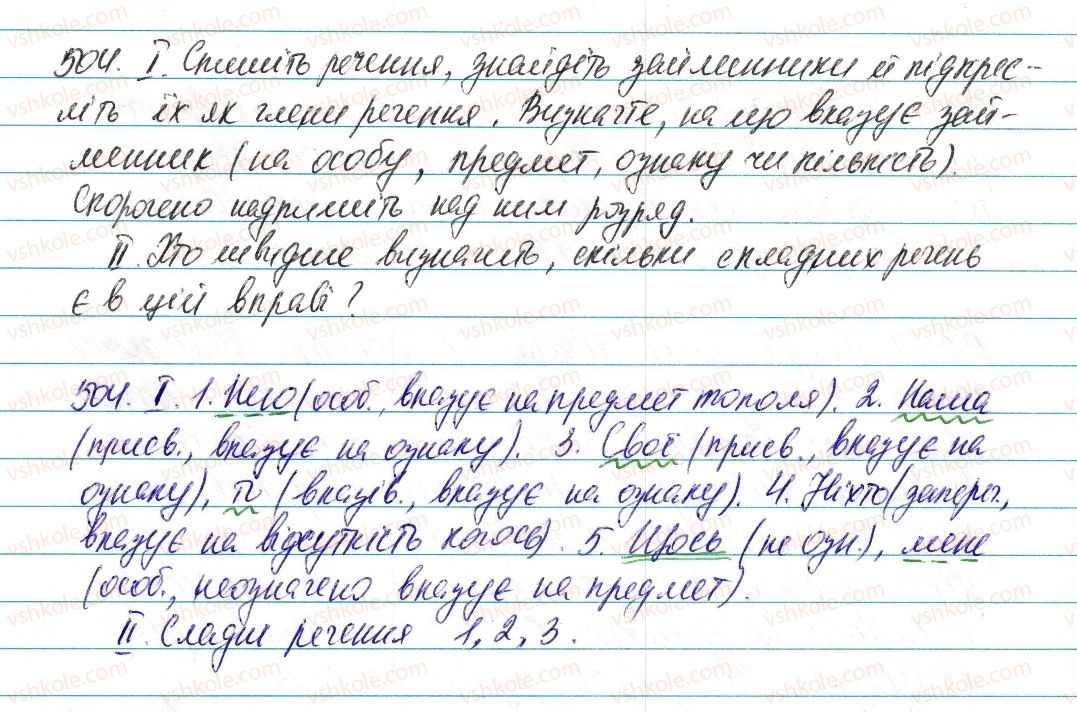 504. I. Спишіть речення, знайдіть займенники й підкрес-
літь їх як члени речення. Визначте, на що вказує зай-
менник (на особу, предмет, ознаку чи кількість).
Скорочено надпишіть над ним розряд.
II. Хто швидше визначить, скільки складних речень
є в цій вправі?
504. I. 1. Нею (особ., вказує на предмет тополя). 2. Наша
(присв., вказує на ознаку). 3. Свої (присв., вказує на
ознаку), ті (вказів., вказує на ознаку). 4. Ніхто (запереч.,
вказує на відсутність когось). 5 Щось (не озн.), мене
(особ., неозначено вказує на предмет).
II. Сладні речення 1, 2, 3.